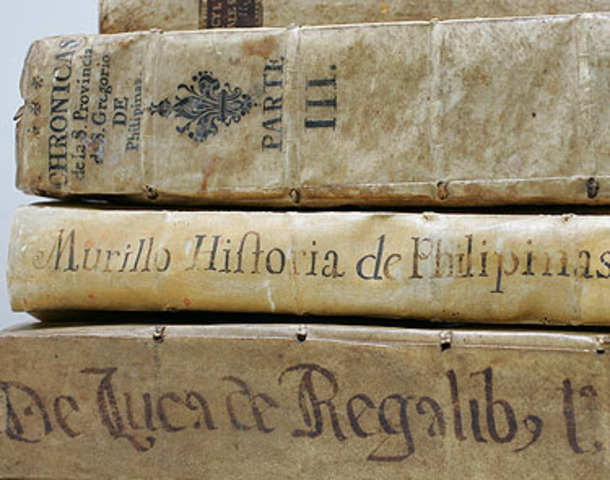 CHRONICAS
de la S. Provincia
de S. Gregorio
DE
Philipinas.
PARTE
III.
Murillo Hiſtoria de Philipinas
De Luca de Regalib,